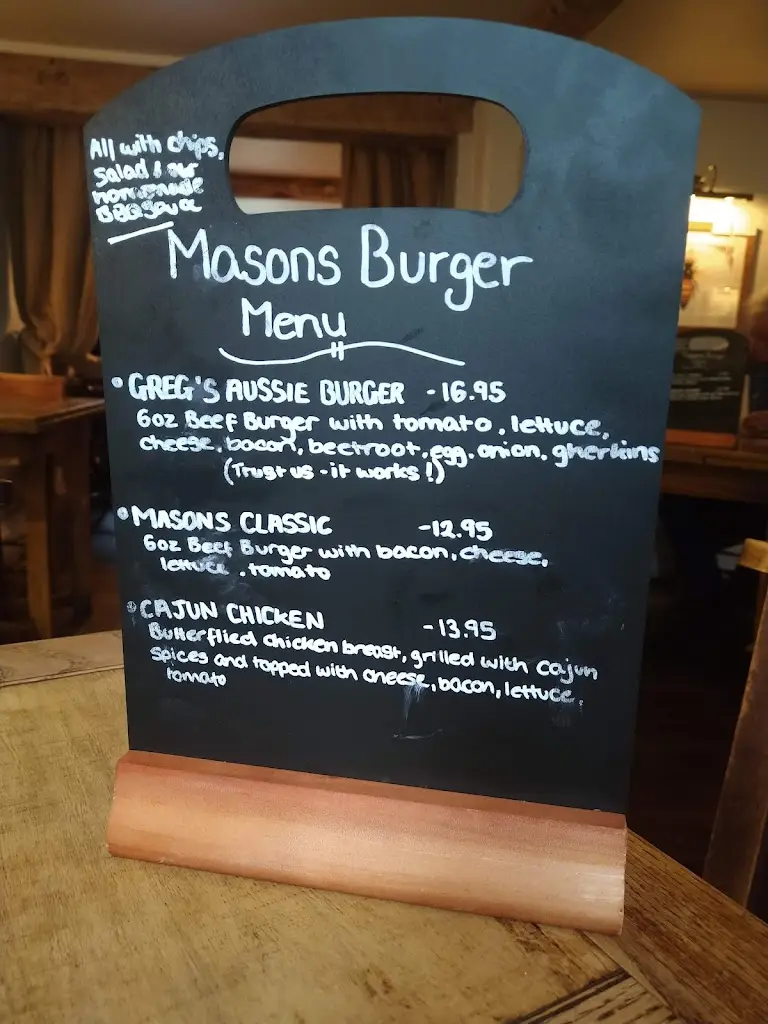 All with chips,
Salad & our
homemade
BBQ Sauce
Masons Burger
Menu
• GREG'S AUSSIE BURGER - 16.95
6oz Beef Burger with tomato, lettuce,
cheese, bacon, beetroot, egg, onion, gherkins
(Trust us - it works!)
• MASONS CLASSIC - 12.95
6oz Beef Burger with bacon, cheese,
lettuce, tomato
• CAJUN CHICKEN - 13.95
Butterflied chicken breast, grilled with Cajun
Spices and topped with cheese, bacon, lettuce,
tomato